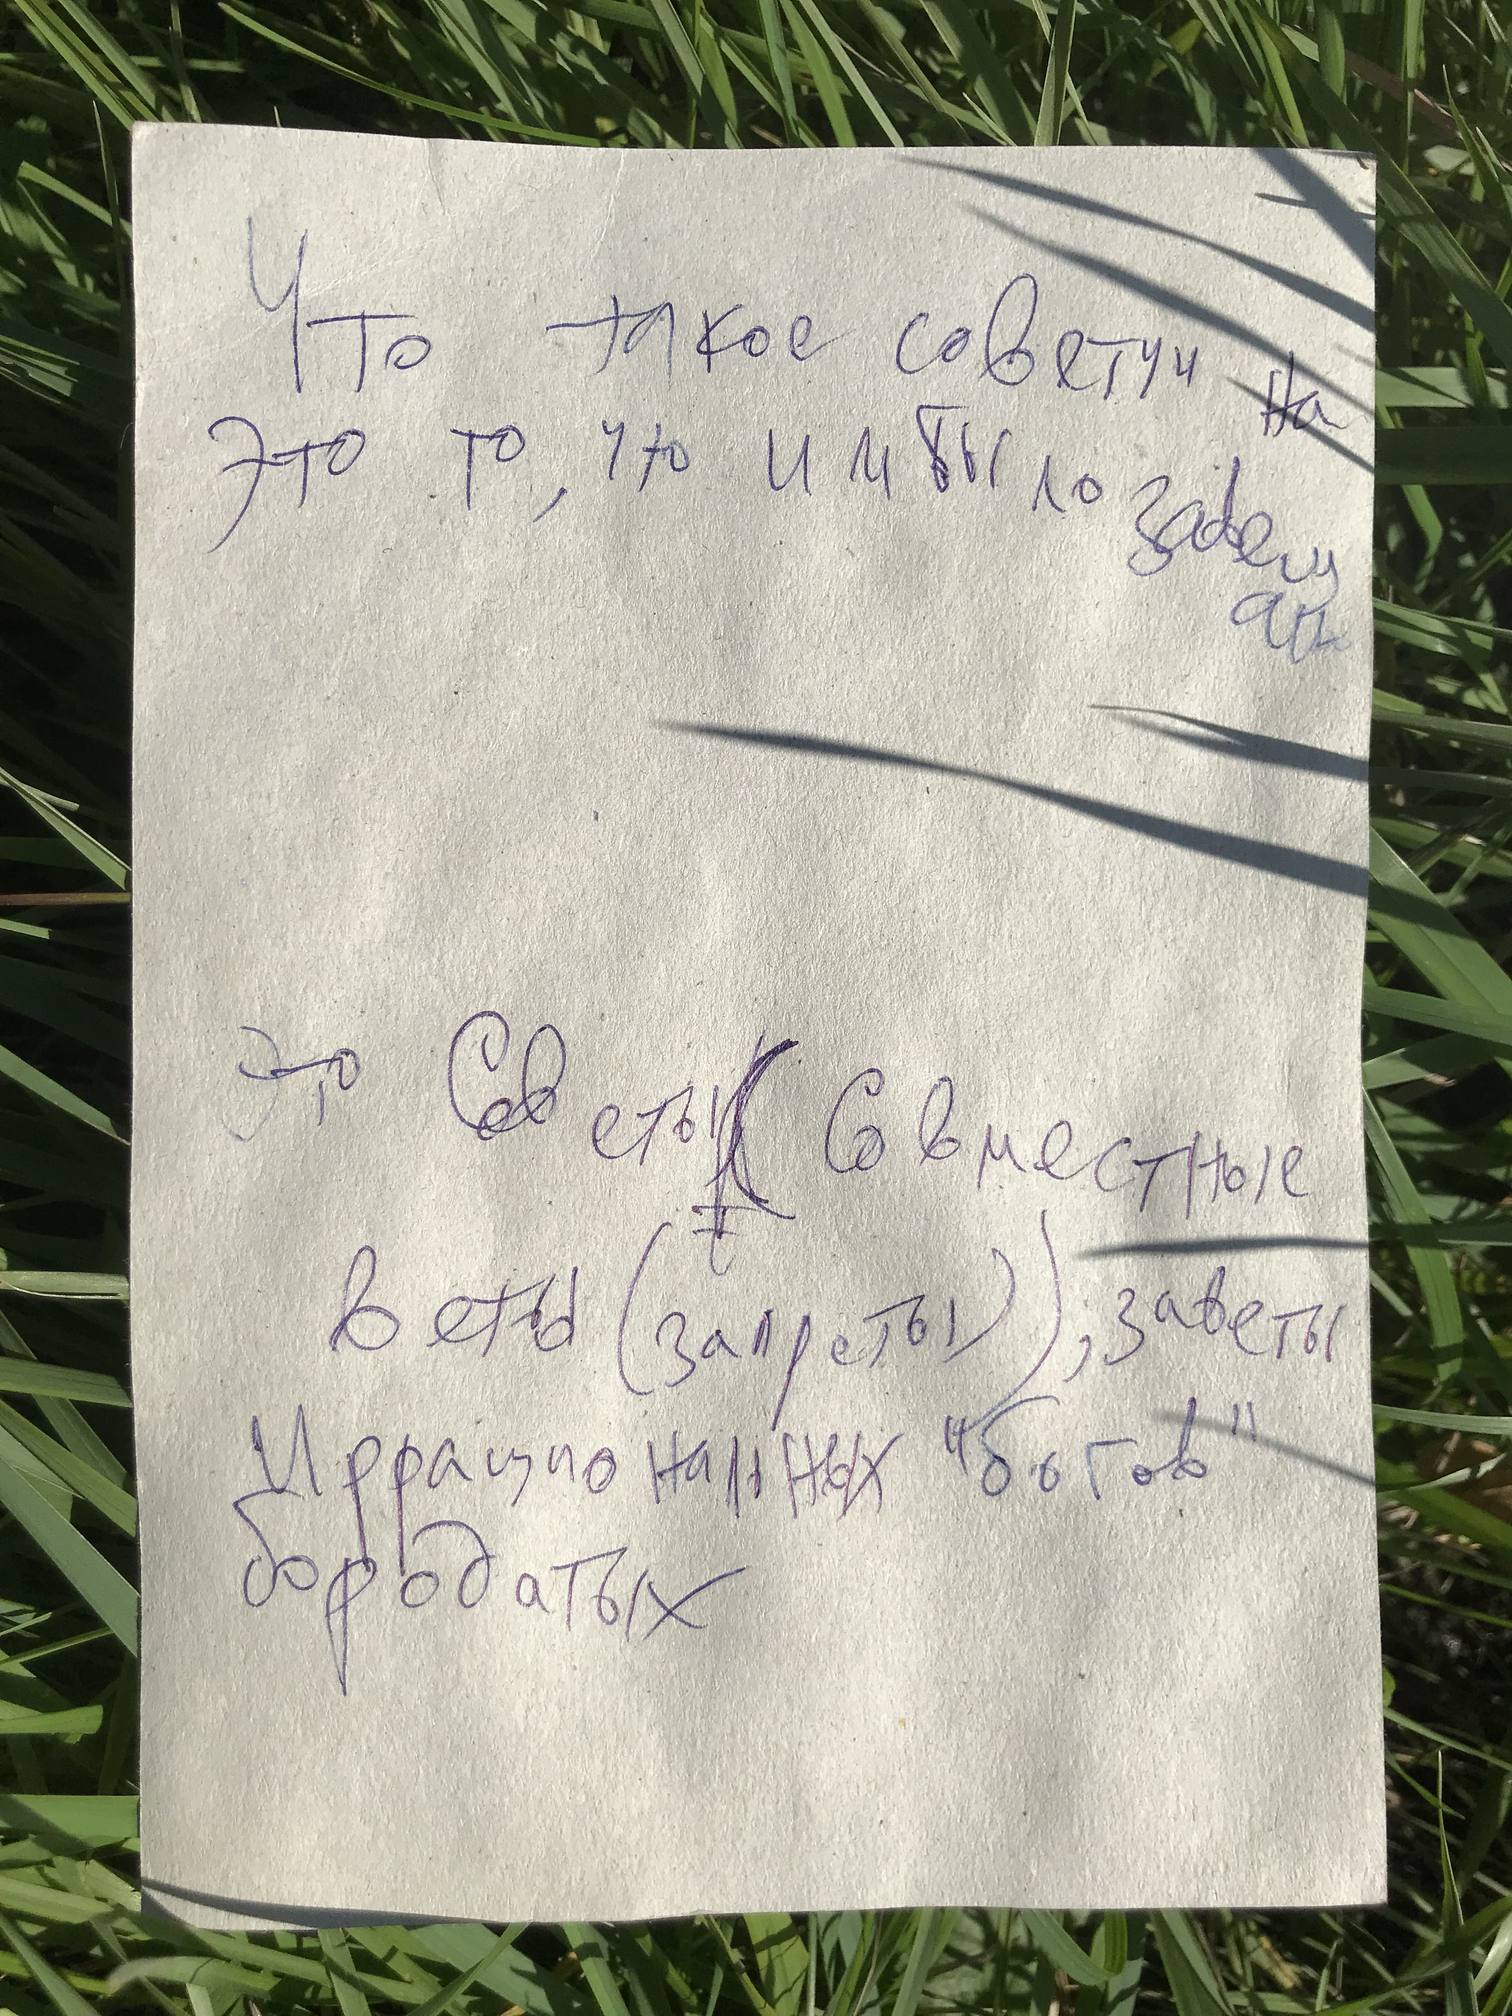 Что такое советчина
Это то, что им было завещ
ан
Это Советы (Совместные
веты (запреты)), заветы
Иррациональных "богов"
бородатых